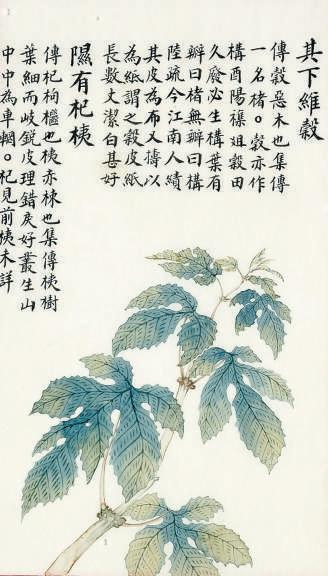 其下維穀
傳穀惡木也集傳
一名楮。穀亦作
構酉陽襍俎穀田
久廢必生構葉有
瓣曰楮無瓣曰構
陸疏今江南人績
其皮為布又擣以
為紙謂之穀皮紙
長數丈潔白甚好
隰有杞桋
傳杞枸檵也桋赤楝也集傳桋樹
葉細而岐銳皮理錯戾好叢生山
中中為車輞。杞見前桋未詳